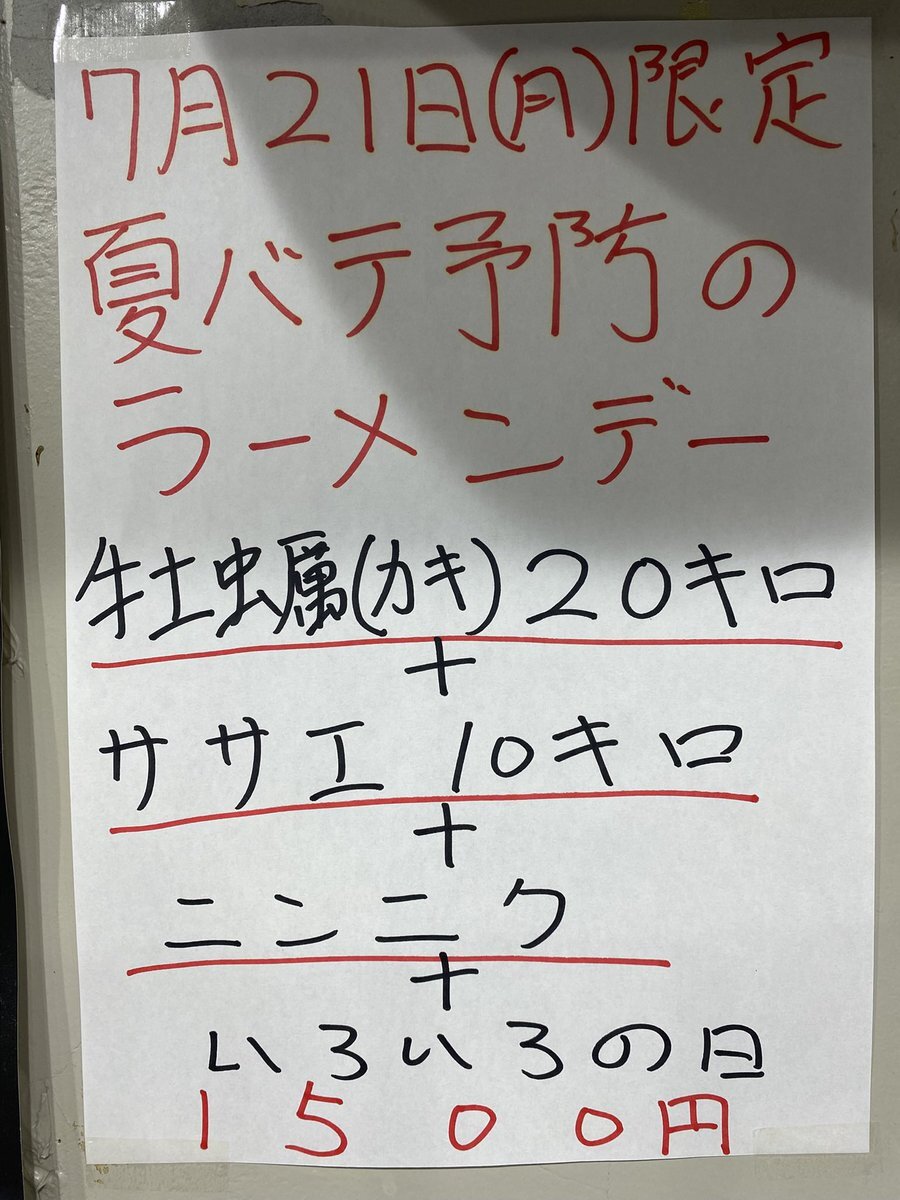 7月21日(月)限定
夏バテ予防の
ラーメンデー
牡蠣(カキ)20キロ
+
ササエ 10キロ
+
ニンニク
+
いろいろの日
1500円